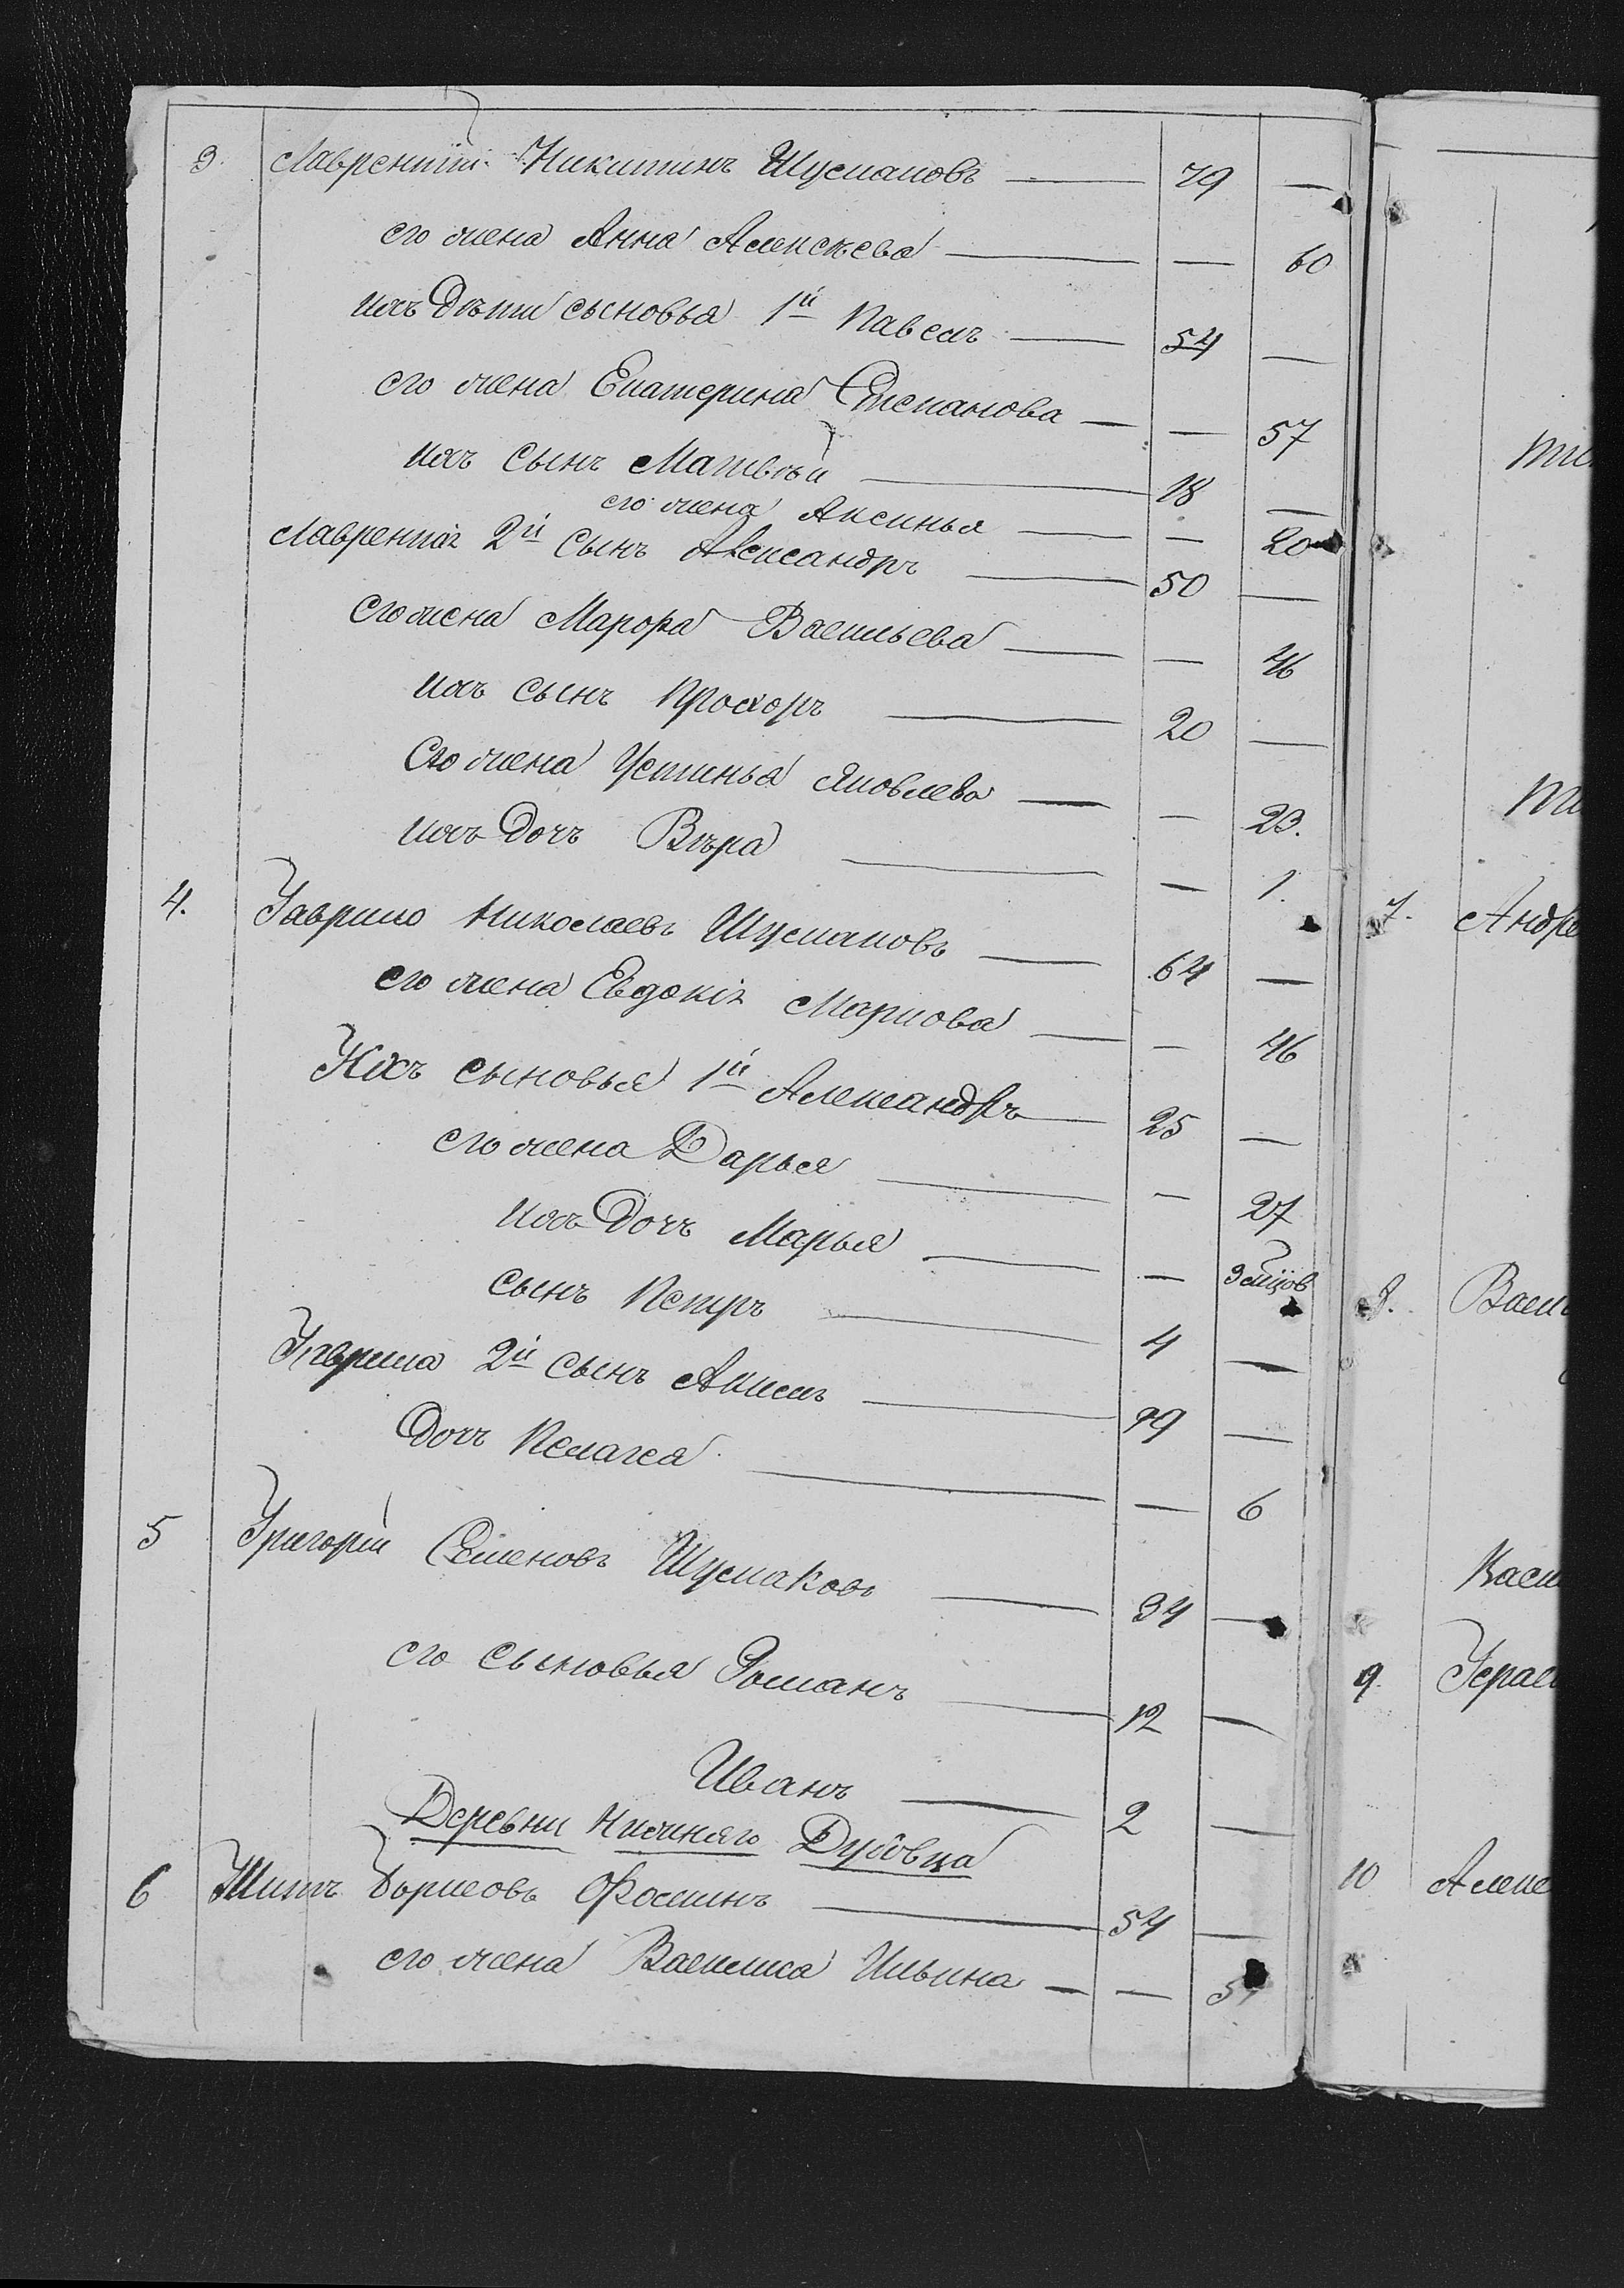 3. Лаврентій Никитинъ Шусмановъ — 79 —
его жена Анна Алексѣева — — 60
ихъ дѣти сыновья 1й Павелъ — 54 —
его жена Екатерина Степанова — — 57
ихъ сынъ Матвѣй — 18 —
его жена Аксинья — — 20
Лаврентія 2й сынъ Александръ — 50 —
его жена Марфа Васильева — — 46
ихъ сынъ Прохоръ — 20 —
Его жена Устинья Яковлева — — 23.
ихъ дочь Вѣра — — 1.
4. Гаврило Николаевъ Шусмановъ — 64 —
его жена Евдокія Маркова — — 46
Ихъ сыновья 1й Александръ — 25 —
его жена Дарья — — 27
ихъ дочь Марья — — 3 мѣцов
сынъ Петръ — 4 —
Гаврила 2й сынъ Акимъ — 19 —
Дочь Пелагея — — 6
5 Григорій Семеновъ Шусмаковъ — 34 —
его сыновья Романъ — 12 —
Иванъ — 2 —
Деревни Нижняго Дубовца
6 Титъ Борисовъ Фоминъ — 54 —
его жена Василиса Ильина — —
7. Андре
8. Васи
Васи
9. Герас
10 Алекс